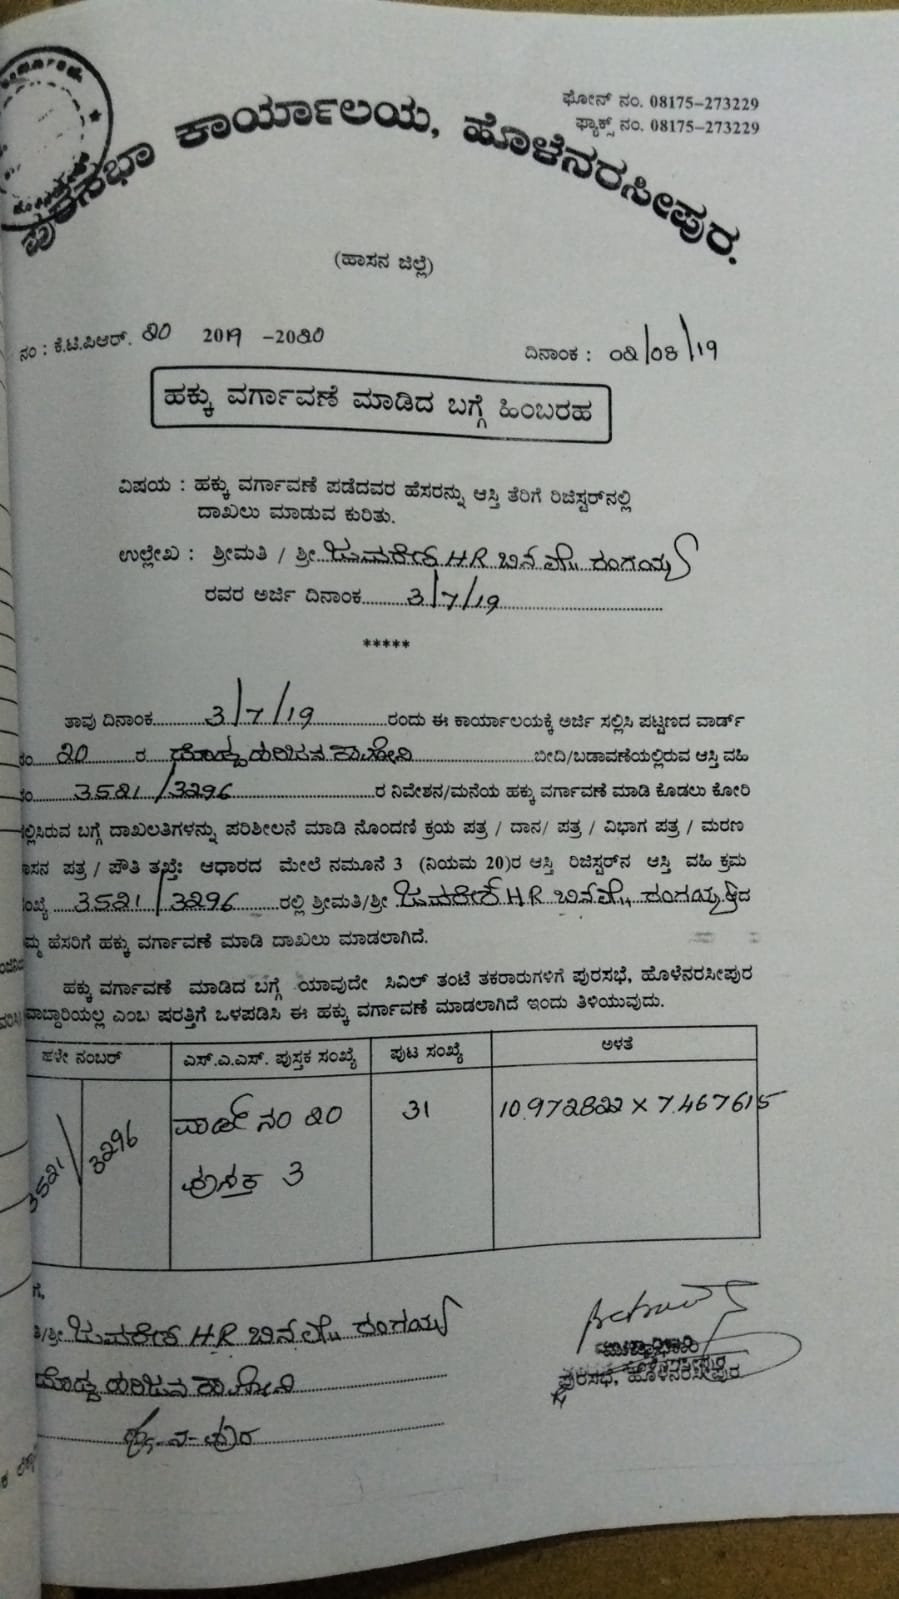 ಫೋನ್ ನಂ. 08175-273229
ಫ್ಯಾಕ್ಸ್ ನಂ. 08175-273229
ಪುರಸಭಾ ಕಾರ್ಯಾಲಯ, ಹೊಳೆನರಸೀಪುರ.
(ಹಾಸನ ಜಿಲ್ಲೆ)
ನಂ : ಕೆ.ಟಿ.ಪಿಆರ್. 20 2019 -2020
ದಿನಾಂಕ : 02/08/19
ಹಕ್ಕು ವರ್ಗಾವಣೆ ಮಾಡಿದ ಬಗ್ಗೆ ಹಿಂಬರಹ
ವಿಷಯ : ಹಕ್ಕು ವರ್ಗಾವಣೆ ಪಡೆದವರ ಹೆಸರನ್ನು ಆಸ್ತಿ ತೆರಿಗೆ ರಿಜಿಸ್ಟರ್‌ನಲ್ಲಿ
ದಾಖಲು ಮಾಡುವ ಕುರಿತು.
ಉಲ್ಲೇಖ : ಶ್ರೀಮತಿ / ಶ್ರೀ HR ಬಿನ್ ರಂಗಯ್ಯ
ರವರ ಅರ್ಜಿ ದಿನಾಂಕ 3/7/19
*****
ತಾವು ದಿನಾಂಕ 3/7/19 ರಂದು ಈ ಕಾರ್ಯಾಲಯಕ್ಕೆ ಅರ್ಜಿ ಸಲ್ಲಿಸಿ ಪಟ್ಟಣದ ವಾರ್ಡ್
ನಂ 20 ರ ದೊಡ್ಡ ಹರಿಜನ ಕಾಲೋನಿ ಬೀದಿ/ಬಡಾವಣೆಯಲ್ಲಿರುವ ಆಸ್ತಿ ವಹಿ
ನಂ 3521/3296 ರ ನಿವೇಶನ/ಮನೆಯ ಹಕ್ಕು ವರ್ಗಾವಣೆ ಮಾಡಿ ಕೊಡಲು ಕೋರಿ
ಲ್ಲಿಸಿರುವ ಬಗ್ಗೆ ದಾಖಲತಿಗಳನ್ನು ಪರಿಶೀಲನೆ ಮಾಡಿ ನೊಂದಣಿ ಕ್ರಯ ಪತ್ರ / ದಾನ/ ಪತ್ರ / ವಿಭಾಗ ಪತ್ರ / ಮರಣ
ಾಸನ ಪತ್ರ / ಪೌತಿ ತಖ್ತೆ ಆಧಾರದ ಮೇಲೆ ನಮೂನೆ 3 (ನಿಯಮ 20)ರ ಆಸ್ತಿ ರಿಜಿಸ್ಟರ್‌ನ ಆಸ್ತಿ ವಹಿ ಕ್ರಮ
ಂಖ್ಯೆ 3521/3296 ರಲ್ಲಿ ಶ್ರೀಮತಿ/ಶ್ರೀ HR ಬಿನ್ ರಂಗಯ್ಯ ಆದ
ಮ್ಮ ಹೆಸರಿಗೆ ಹಕ್ಕು ವರ್ಗಾವಣೆ ಮಾಡಿ ದಾಖಲು ಮಾಡಲಾಗಿದೆ.
ಹಕ್ಕು ವರ್ಗಾವಣೆ ಮಾಡಿದ ಬಗ್ಗೆ ಯಾವುದೇ ಸಿವಿಲ್ ತಂಟೆ ತಕರಾರುಗಳಿಗೆ ಪುರಸಭೆ, ಹೊಳೆನರಸೀಪುರ
ವಾಬ್ದಾರಿಯಲ್ಲ ಎಂಬ ಷರತ್ತಿಗೆ ಒಳಪಡಿಸಿ ಈ ಹಕ್ಕು ವರ್ಗಾವಣೆ ಮಾಡಲಾಗಿದೆ ಇಂದು ತಿಳಿಯುವುದು.
ಹಳೇ ನಂಬರ್ ಎಸ್.ಎ.ಎಸ್. ಪುಸ್ತಕ ಸಂಖ್ಯೆ ಪುಟ ಸಂಖ್ಯೆ ಅಳತೆ
3521/3296 ವಾರ್ಡ್ ನಂ 20 31 10.972822 × 7.467615
ಪುಸ್ತಕ 3
ಗೆ,
ತಿ/ಶ್ರೀ HR ಬಿನ್ ರಂಗಯ್ಯ
ದೊಡ್ಡ ಹರಿಜನ ಕಾಲೋನಿ
ಹೊ-ನ-ಪುರ
ಮುಖ್ಯಾಧಿಕಾರಿ
ಪುರಸಭೆ, ಹೊಳೆನರಸೀಪುರ